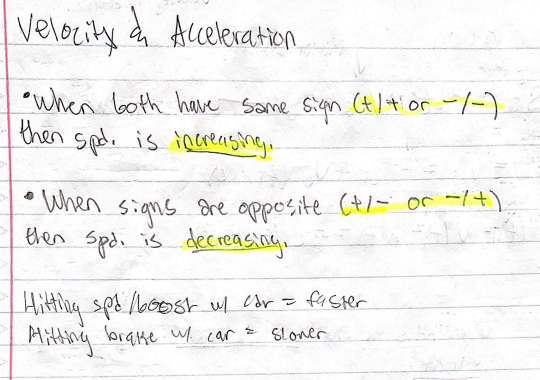 Velocity & Acceleration
• When both have same sign (+/+ or -/-)
then spd. is increasing.
• When signs are opposite (+/- or -/+)
then spd. is decreasing.
Hitting spd/boost w/ car = faster
Hitting brake w/ car = slower